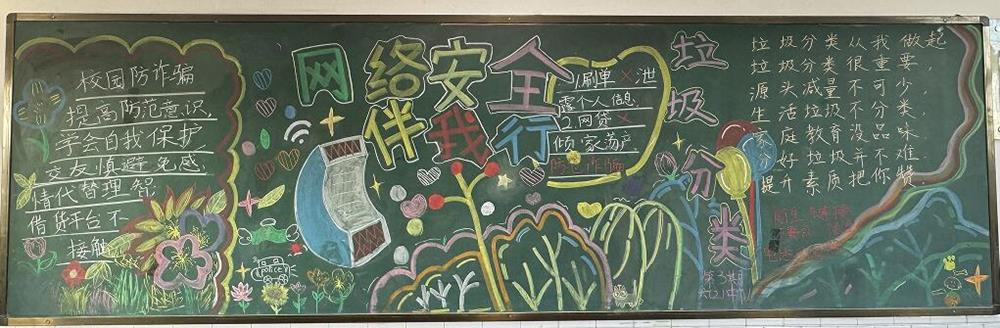 校园防诈骗
提高防范意识
学会自我保护
交友慎避免感
情代替理智
借贷平台不
接触
网络安全
伴我行
1.刷单×泄
露个人信息
2.网贷×
倾家荡产
垃圾分类
垃圾分类从我做起
垃圾分类很重要,
源头减量不可少,
生活垃圾不分类,
家庭教育没品味
分好垃圾并不难
提升素质把你赞
第3期